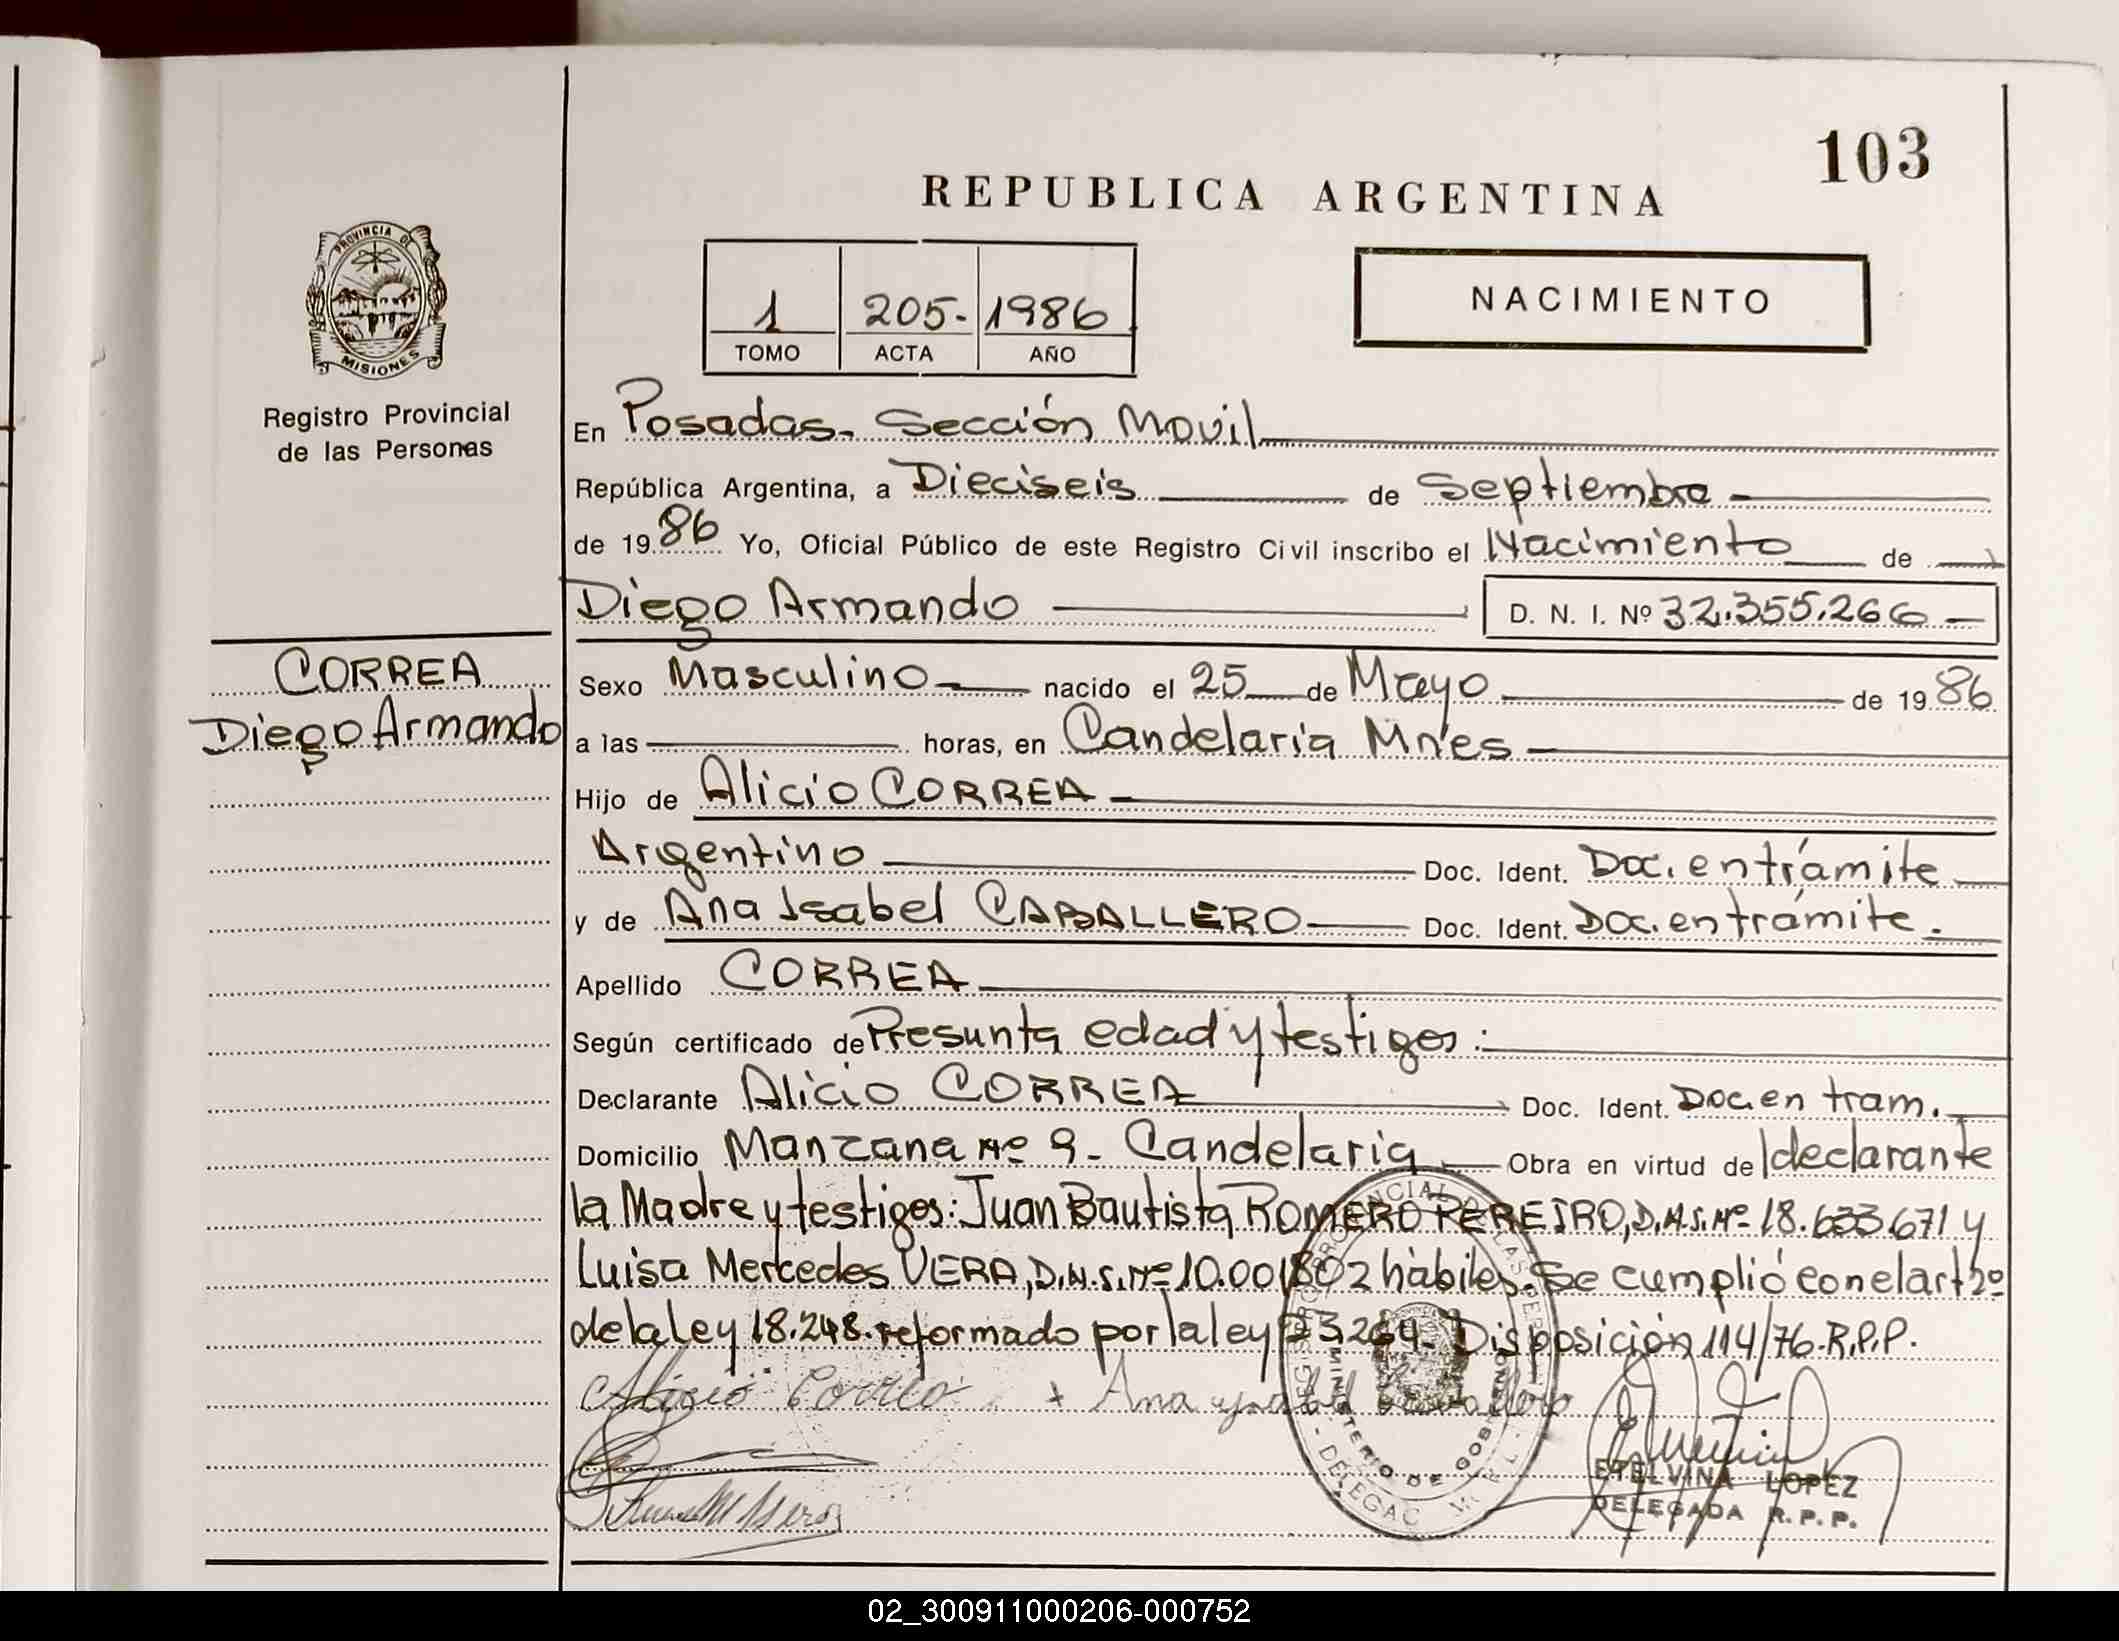 103
REPUBLICA ARGENTINA
PROVINCIA DE MISIONES
Registro Provincial
de las Personas
1 205- 1986
TOMO ACTA AÑO
NACIMIENTO
En Posadas- Sección Movil
República Argentina, a Dieciseis de Septiembre
de 1986 Yo, Oficial Público de este Registro Civil inscribo el Nacimiento de
Diego Armando D. N. I. Nº 32.355.266
CORREA
Diego Armando
Sexo Masculino nacido el 25 de Mayo de 1986
a las horas, en Candelaria Mnes
Hijo de Alicio CORREA
Argentino Doc. Ident. Doc. en trámite
y de Ana Isabel CABALLERO Doc. Ident. Doc. en trámite.
Apellido CORREA
Según certificado de Presunta edad y testigos:
Declarante Alicio CORREA Doc. Ident. Doc. en tram.
Domicilio Manzana Nº 9- Candelaria Obra en virtud de declarante
la Madre y testigos: Juan Bautista ROMERO PEREIRO, D.N.I. Nº 18.633.671 y
Luisa Mercedes VERA, D.N.I. Nº 10.001.802 hábiles. Se cumplió con el art 2º
de la Ley 18.248. reformado por la ley 23.264. Disposición 114/76-R.P.P.
Alicio Correa + Ana ysabel
MINISTERIO DE GOBIERNO
ETELVINA LOPEZ
DELEGADA R.P.P.
02_300911000206-000752